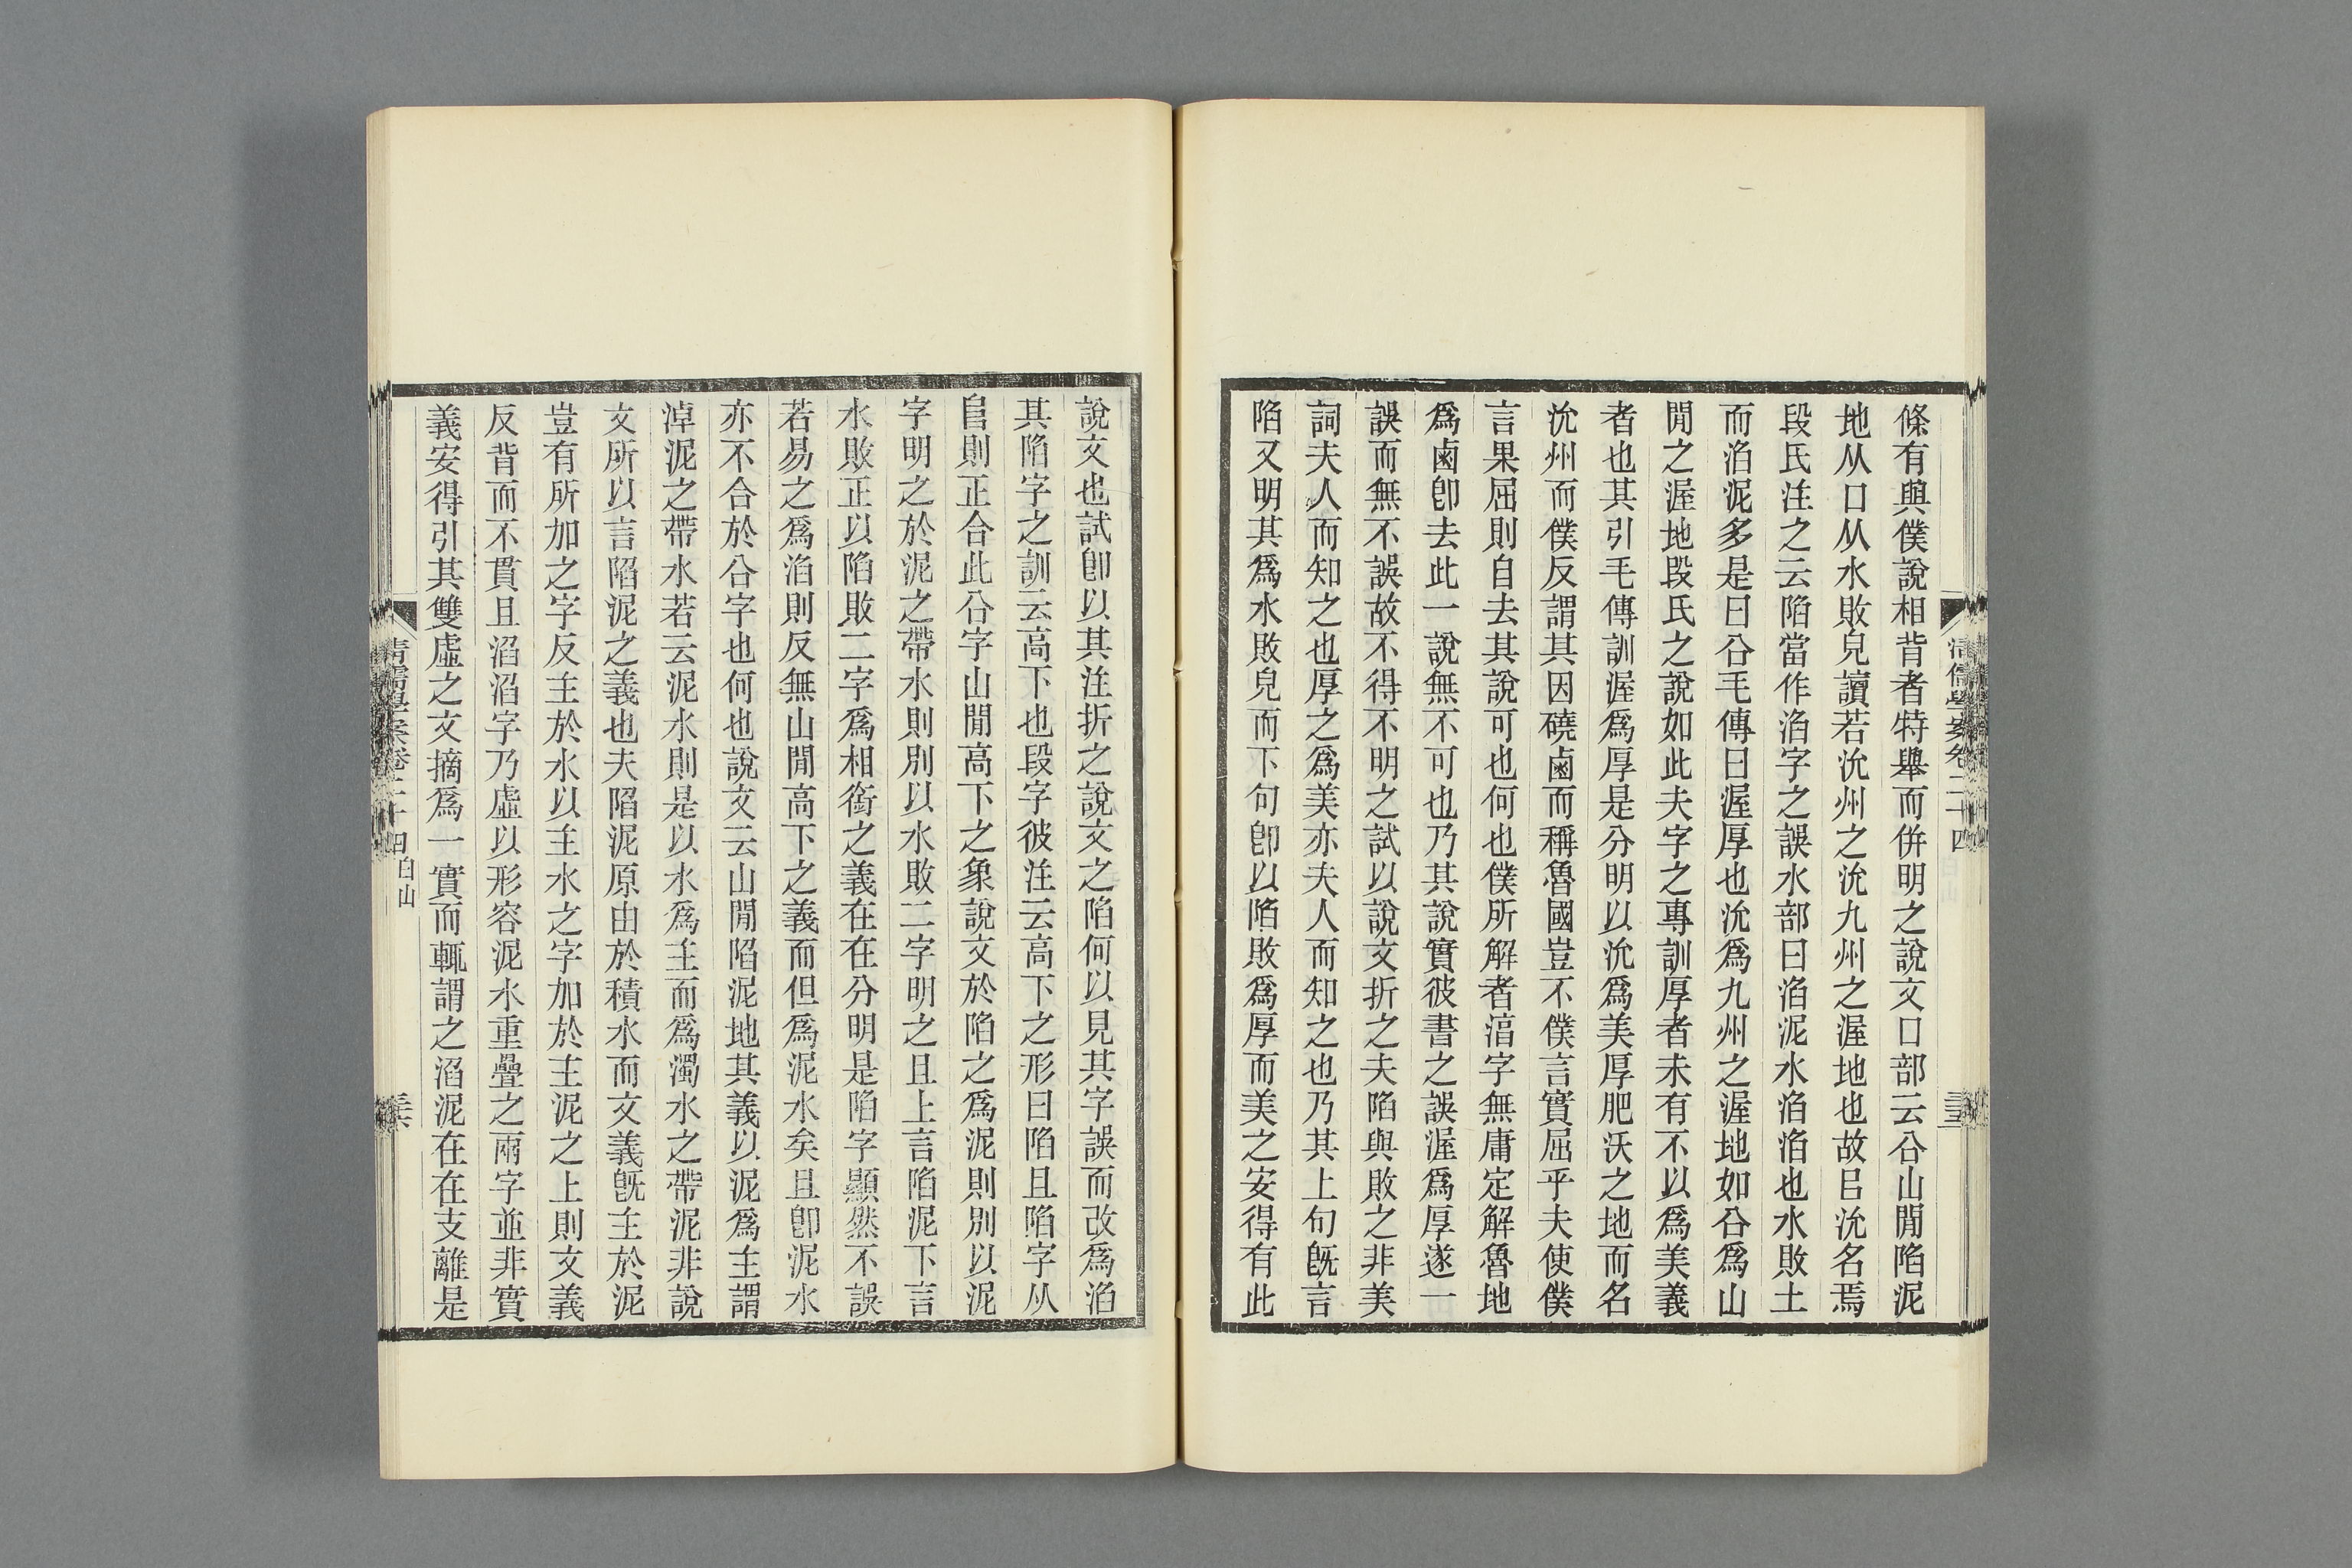 清儒學案卷二十四
條有與僕說相背者特舉而併明之說文口部云㕣山閒陷泥
地从口从水敗皃讀若沇州之沇九州之渥地也故㠯沇名焉
段氏注之云陷當作淊字之誤水部曰淊泥水淊淊也水敗土
而淊泥多是曰㕣毛傳曰渥厚也沇爲九州之渥地如㕣爲山
閒之渥地段氏之說如此夫字之專訓厚者未有不以爲美義
者也其引毛傳訓渥爲厚是分明以沇爲美厚肥沃之地而名
沇州而僕反謂其因磽鹵而稱魯國豈不僕言實屈乎夫使僕
言果屈則自去其說可也何也僕所解者湇字無庸定解魯地
爲鹵卽去此一說無不可也乃其說實彼書之誤渥爲厚遂一
誤而無不誤故不得不明之試以說文折之夫陷與敗之非美
詞夫人而知之也厚之爲美亦夫人而知之也乃其上句旣言
陷又明其爲水敗皃而下句卽以陷敗爲厚而美之安得有此
說文也試卽以其注折之說文之陷何以見其字誤而改爲淊
其陷字之訓云高下也段字彼注云高下之形曰陷且陷字从
𨸏則正合此㕣字山閒高下之象說文於陷之爲泥則別以泥
字明之於泥之帶水則別以水敗二字明之且上言陷泥下言
水敗正以陷敗二字爲相銜之義在在分明是陷字顯然不誤
若易之爲淊則反無山閒高下之義而但爲泥水矣且卽泥水
亦不合於㕣字也何也說文云山閒陷泥地其義以泥爲主謂
淖泥之帶水若云泥水則是以水爲主而爲濁水之帶泥非說
文所以言陷泥之義也夫陷泥原由於積水而文義旣主於泥
豈有所加之字反主於水以主水之字加於主泥之上則文義
反背而不貫且淊淊字乃虛以形容泥水重疊之兩字並非實
義安得引其雙虛之文摘爲一實而輒謂之淊泥在在支離是
清儒學案卷二十四 白山 三六